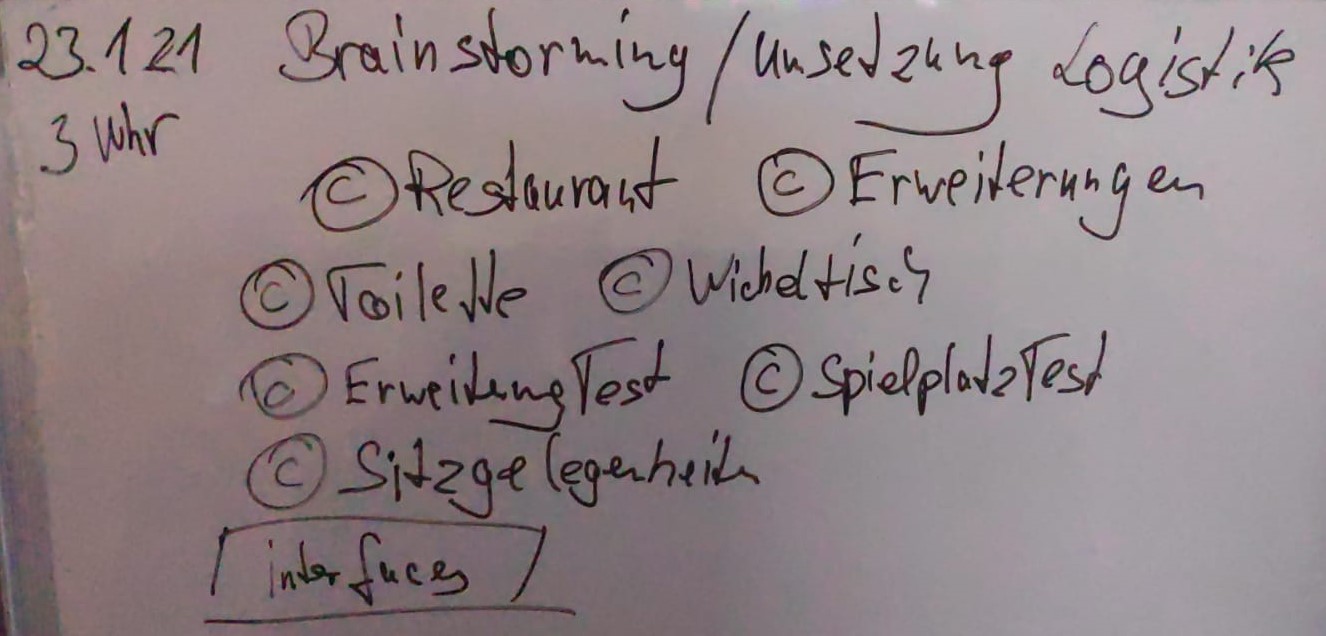 23.1.21 Brainstorming / Umsetzung Logistik
3 Uhr
© Restaurant © Erweiterungen
© Toilette © Wickeltisch
© ErweiterungTest © SpielplatzTest
© Sitzgelegenheiten
interfaces